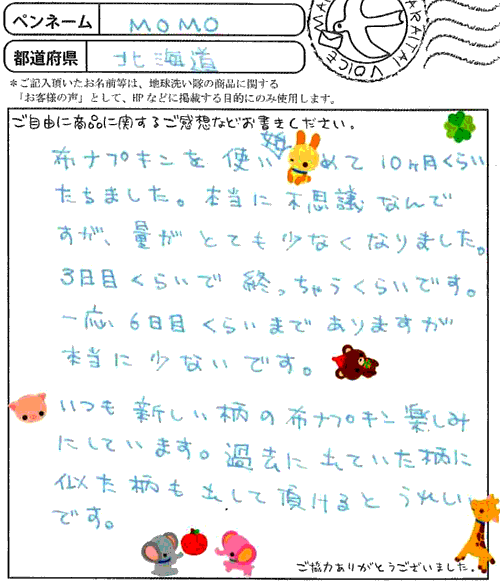 ペンネーム MOMO
都道府県 北海道
ARATAI VOICE
＊ご記入頂いたお名前等は、地球洗い隊の商品に関する
「お客様の声」として、HPなどに掲載する目的にのみ使用します。
ご自由に商品に関するご感想などお書きください。
布ナプキンを使い始めて10ヶ月くらい
たちました。本当に不思議なんで
すが、量がとても少なくなりました。
3日目くらいで終っちゃうくらいです。
一応6日目くらいまでありますが
本当に少ないです。
いつも新しい柄の布ナプキン楽しみ
にしています。過去に出ていた柄に
似た柄も出して頂けるとうれしい
です。
ご協力ありがとうございました。